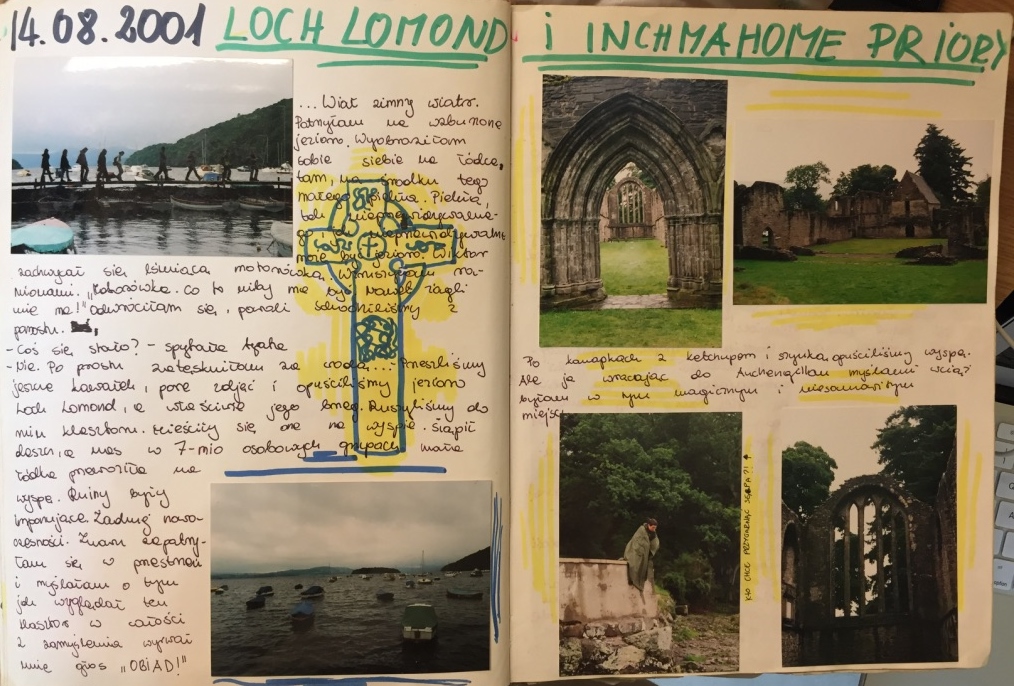 14.08.2001 LOCH LOMOND
i INCHMAHOME PRIORY
...Wiał zimny wiatr.
Patrzyłam na wzburzone
jezioro. Wyobraziłam
sobie siebie na łódce,
tam, na środku tego
małego piekła. Piekła,
tak
jezioro. Wiktor
zachwycał się lśniącą motorówką. Wzruszyłam ra-
mionami. „Motorówka. Co to niby ma być. Nawet żagli
nie ma!" odwróciłam się, i powoli schodziliśmy z
pomostu.
- Coś się stało? - spytała Agata
- Nie. Po prostu zatęskniłam za wodą... Zrobiliśmy
jeszcze kawałek, parę zdjęć i opuściliśmy jezioro
Loch Lomond, a właściwie jego brzeg. Ruszyliśmy do
ruin klasztoru. Mieściły się one na wyspie. Siąpił
deszcz, a nas w 7-mio osobowych grupach mała
łódka przewoziła na
wyspę. Ruiny były
imponujące. Żadnej nowo-
czesności. Znów zapatrzy-
łam się w przestrzeń
i myślałam o tym
jak wyglądał ten
klasztor w całości
Z zamyślenia wyrwał
mnie głos „OBIAD!"
Po kanapkach z ketchupem i szynką opuściliśmy wyspę.
Ale ja wracając do Auchengillan myślami wciąż
byłam w tym magicznym i niesamowitym
miejscu
KTO CHCE PRZYGARNĄĆ SĘPA?!